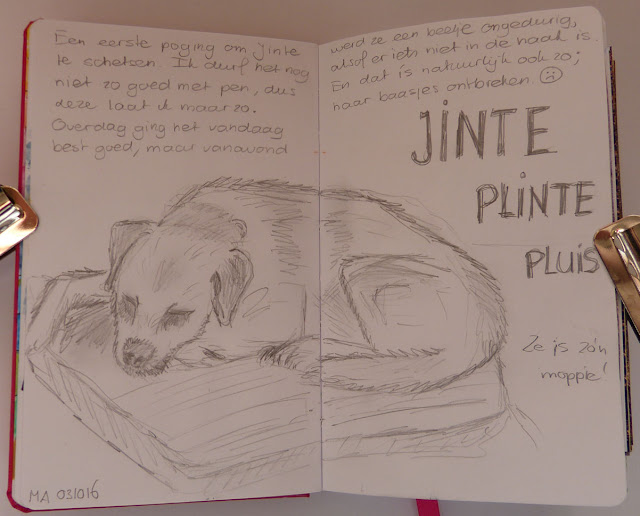 Een eerste poging om Jinte
te schetsen. Ik durf het nog
niet zo goed met pen, dus
deze laat ik maar zo.
Overdag ging het vandaag
best goed, maar vanavond
werd ze een beetje ongedurig,
alsof er iets niet in de haak is.
En dat is natuurlijk ook zo;
haar baasjes ontbreken.
JINTE
PLINTE
PLUIS
Ze is zo'n
moppie!
MA 031016